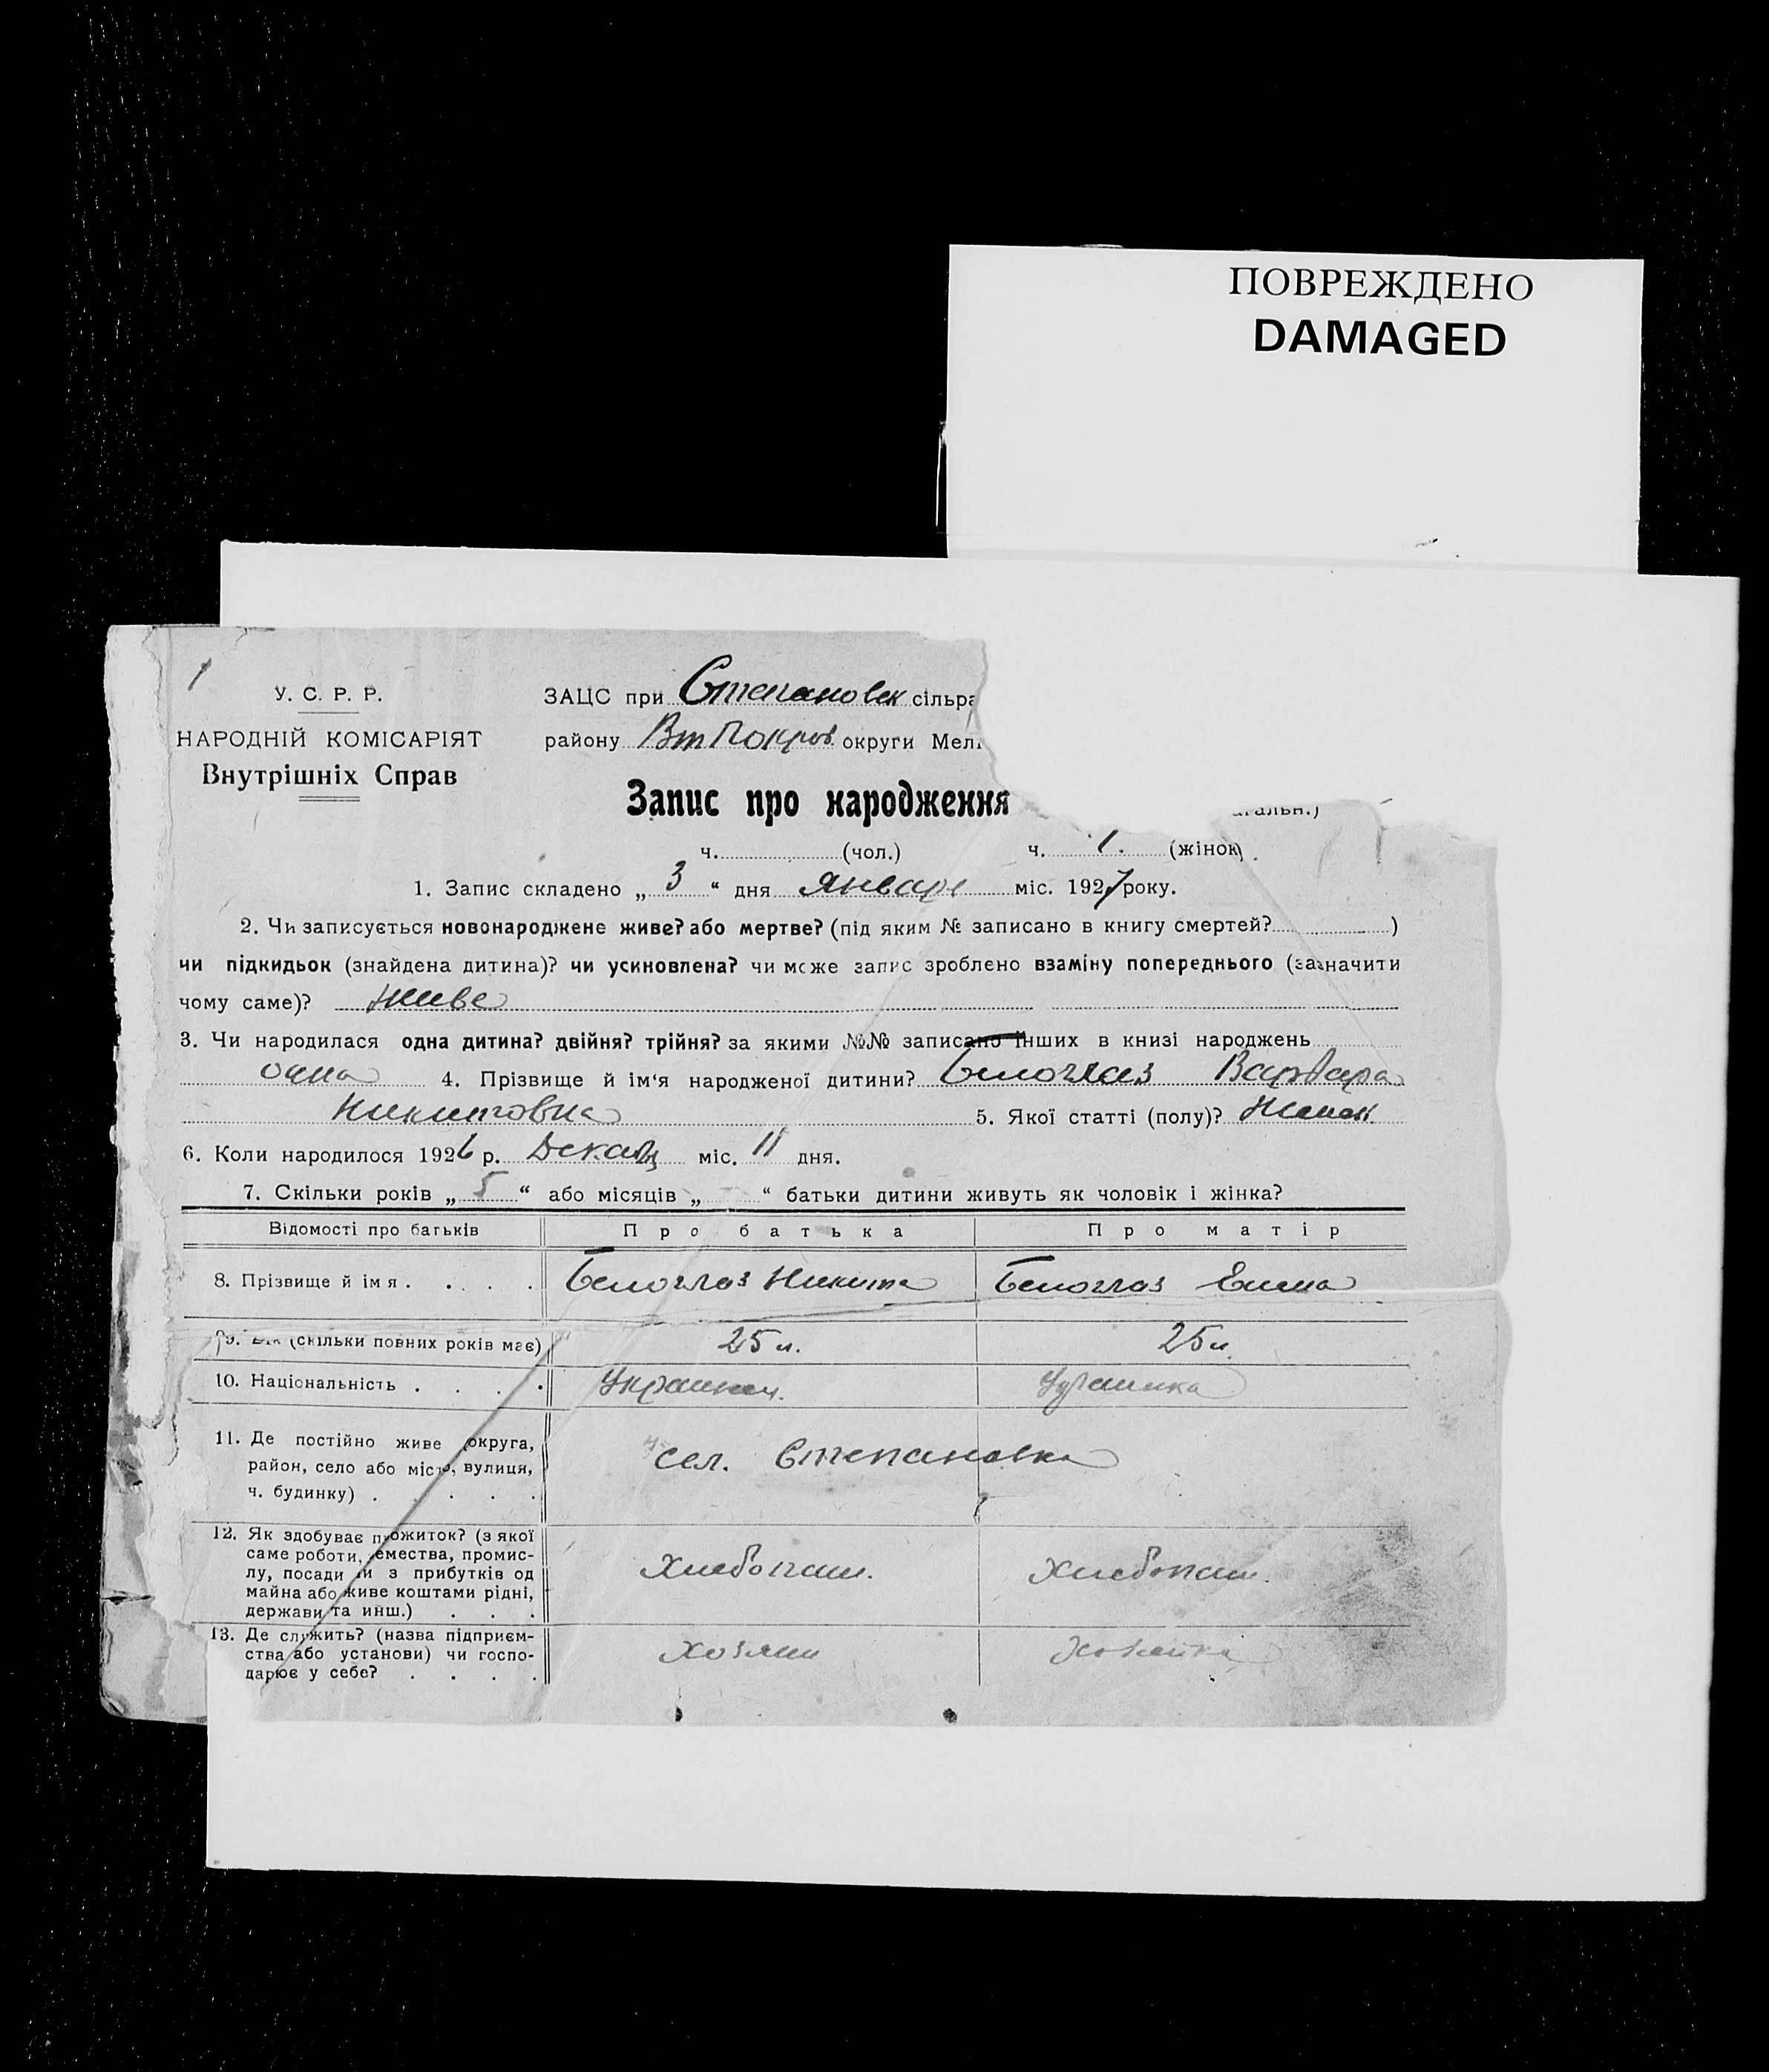 ПОВРЕЖДЕНО
DAMAGED
1
У. С. Р. Р.
НАРОДНІЙ КОМІСАРІЯТ
Внутрішніх Справ
ЗАЦС при Степановск сільра
району Вт Покров. округи Мел
Запис про народження
альн.)
ч. (чол.) ч. 1. (жінок)
1. Запис складено „ 3 “ дня января міс. 1927 року.
2. Чи записується новонароджене живе? або мертве? (під яким № записано в книгу смертей? )
чи підкидьок (знайдена дитина)? чи усиновлена? чи може запис зроблено взаміну попереднього (зазначити
чому саме)? живе
3. Чи народилася одна дитина? двійня? трійня? за якими №№ записано інших в книзі народжень
одна 4. Прізвище й ім‘я народженої дитини? Белоглаз Варвара
Никитовна 5. Якої статті (полу)? Женск.
6. Коли народилося 1926 р. Декабр міс. 11 дня.
7. Скільки років „ 5 “ або місяців „ “ батьки дитини живуть як чоловік і жінка?
Відомості про батьків Про батька Про матір
8. Прізвище й імя . . . . . Белоглаз Никита Белоглаз Елена
9. Вік (скільки повних років має) 25 л. 25 л.
10. Національність . . . . Украинец. Украинка
11. Де постійно живе (округа,
район, село або місто, вулиця,
ч. будинку) . . . . .
сел. Степановка
12. Як здобуває прожиток? (з якої
саме роботи, ремества, промис-
лу, посади чи з прибутків од
майна або живе коштами рідні,
держави та инш.) . . .
Хлебопаш. Хлебопаш.
13. Де служить? (назва підприєм-
ства або установи) чи госпо-
дарює у себе? . . . .
Хозяин Хозяйка